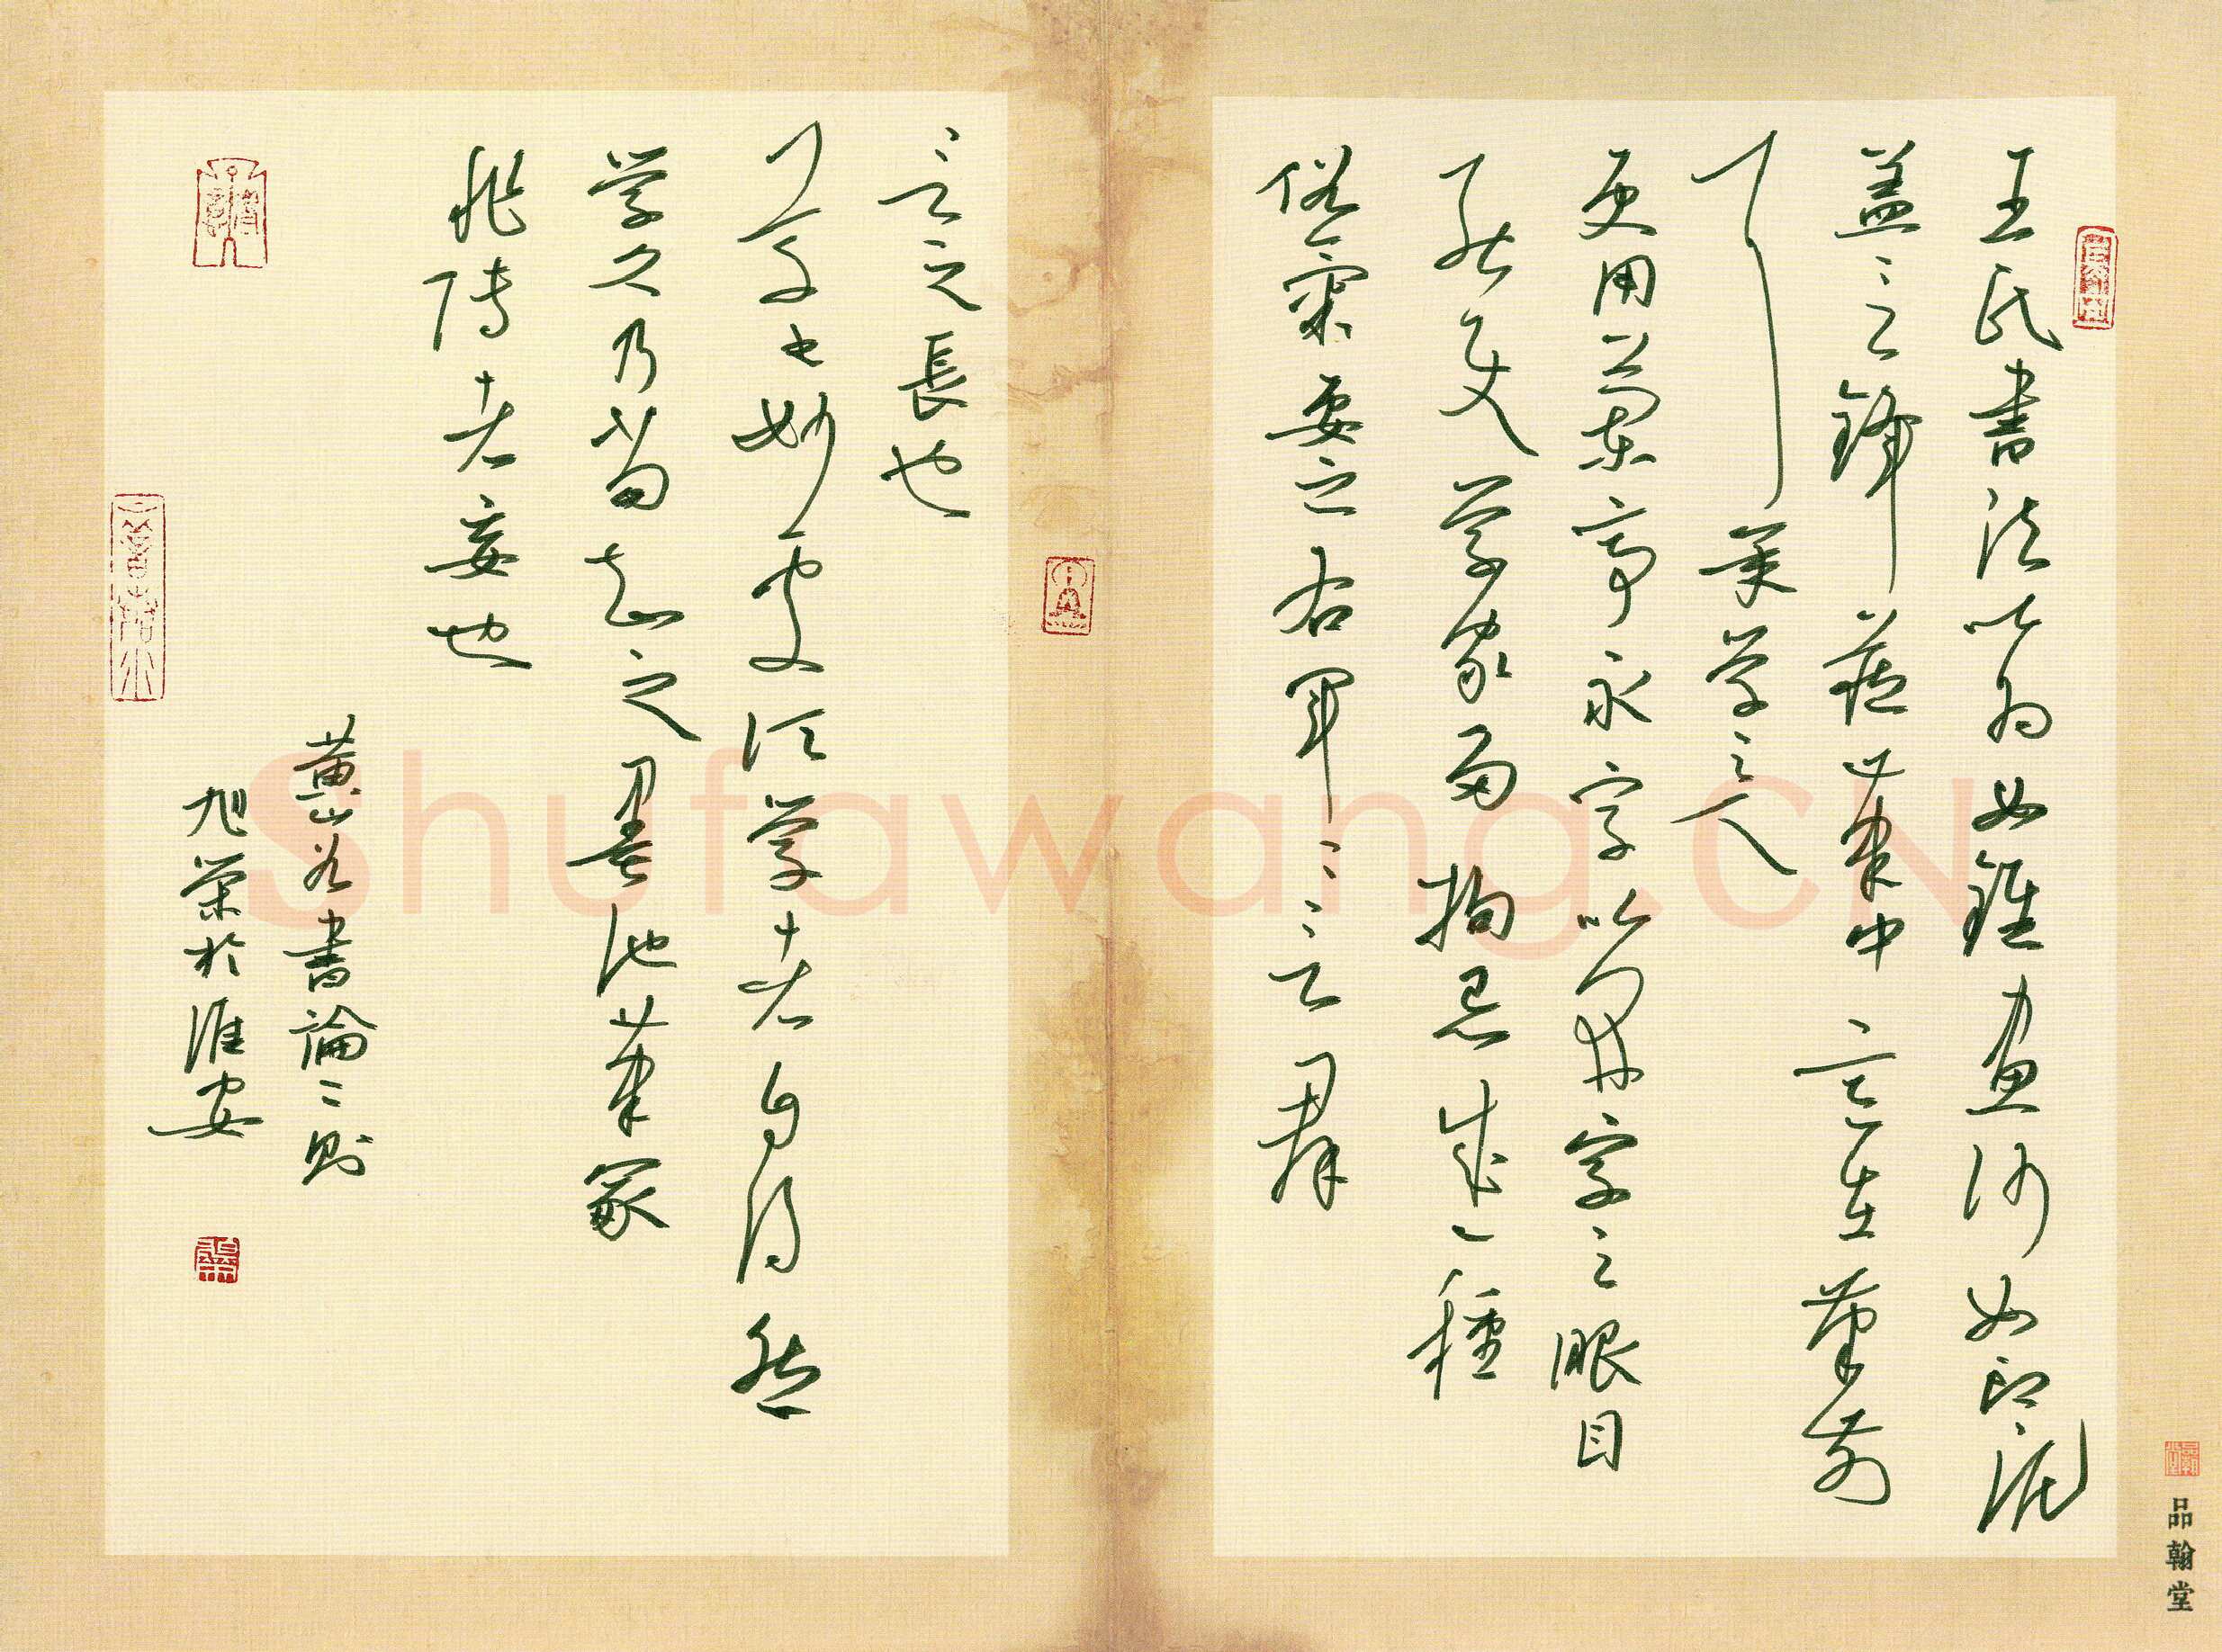 王氏書法以为如錐畫沙如印泥
盖言鋒藏筆中意在筆前
耳承学之人
更用蘭亭永字以開字之眼目
能使学家多拘忌成一種
俗氣要之右軍二言群
言之長也
草书妙處須学者自得然
学久乃當知之墨池筆冢
非傳者妄也
黄山谷書論二則
旭榮於淮安
品翰堂
Shufawang.CN